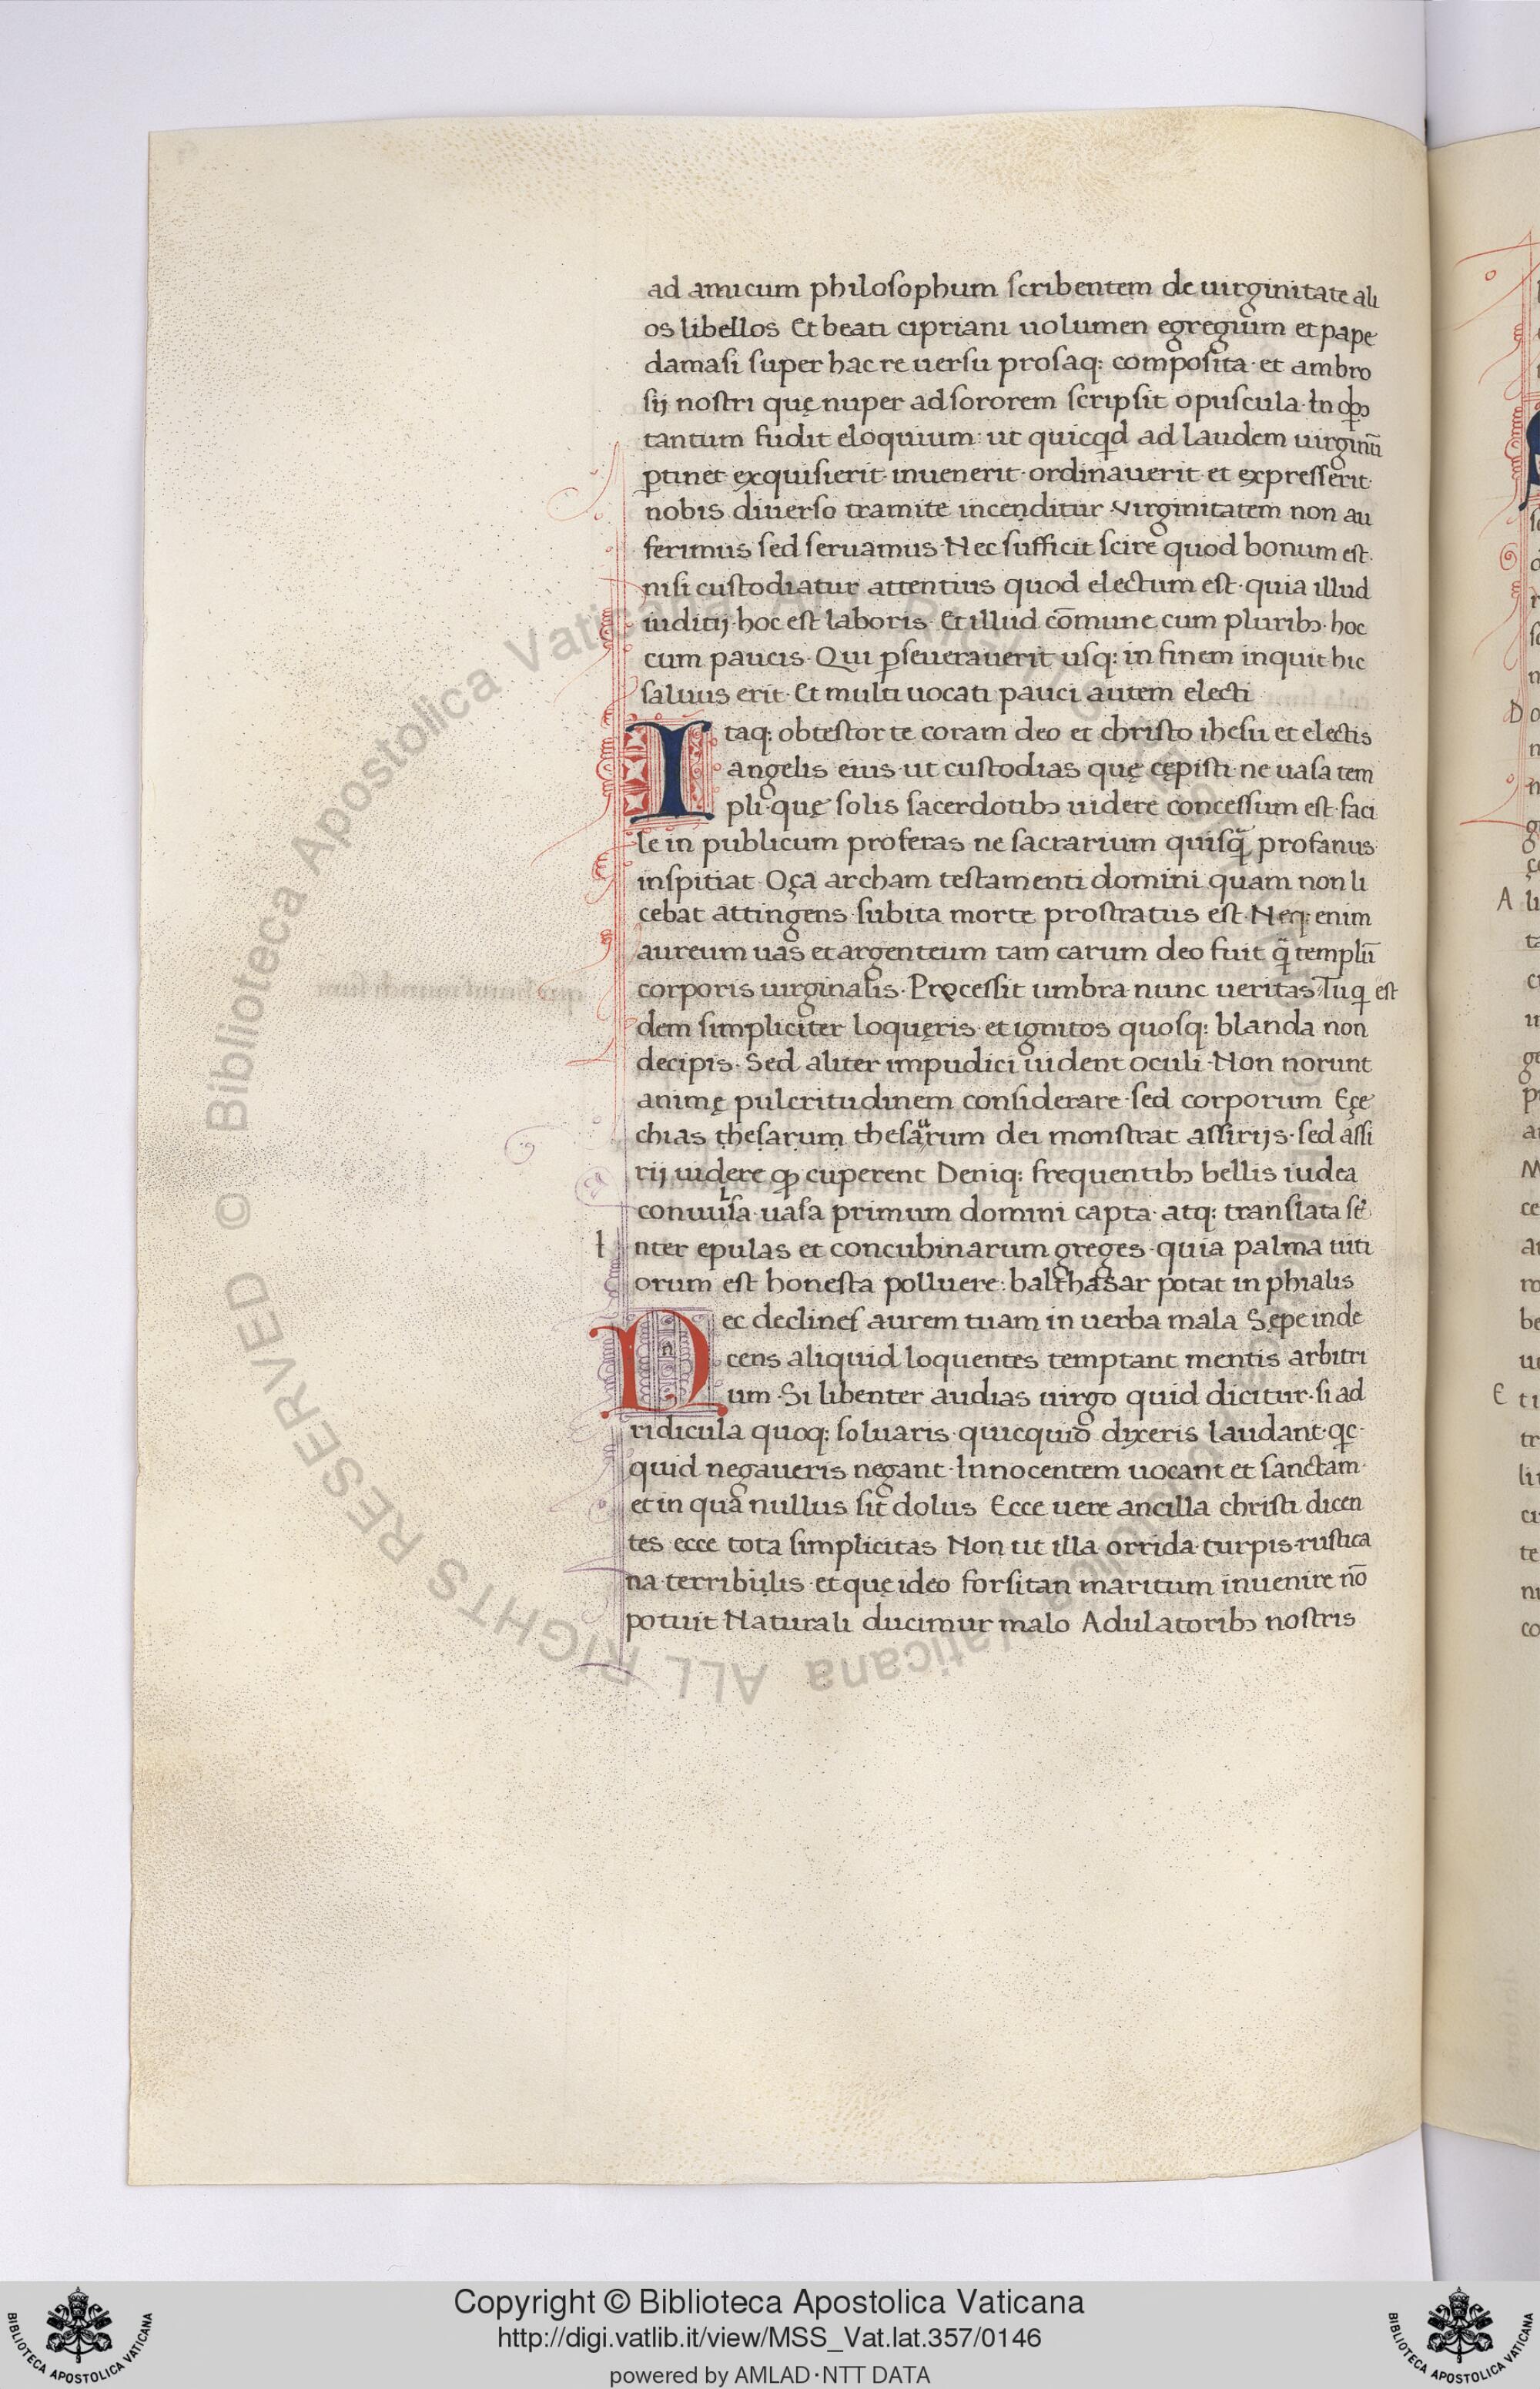 ad amicum philosophum scribentem de uirginitate ali
os libellos Et beati cipriani uolumen egregium et pape
damasi super hac re uersu prosaq: composita · et ambro
sij nostri quę nuper ad sororem scripsit opuscula · In qͦbꝫ
tantum fudit eloquium: ut quicqͥd ad laudem uirginū
ꝑtinet exquisierit · inuenerit · ordinauerit · et expresserit ·
nobis diuerso tramite incenditur · virginitatem non au
ferimus sed seruamus · Nec sufficit scire quod bonum est ·
nisi custodiatur attentius quod electum est · quia illud
iuditij · hoc est laboris · Et illud cōmune cum pluribꝫ · hoc
cum paucis · Qui ꝑseuerauerit usq: in finem inquit hic
saluus erit · Et multi uocati pauci autem electi
Itaq: obtestor te coram deo et christo ihesu et electis
angelis eius · ut custodias quę cępisti · ne uasa tem
pli · quę solis sacerdotibꝫ uidere concessum est · faci
le in publicum proferas ne sacrarium quisq̄ profanus ·
inspitiat · Oça archam testamenti domini quam non li
cebat attingens · subita morte prostratus est · Neq: enim
aureum uas et argenteum tam carum deo fuit q̄ templū
corporis uirginalis · Pręcessit umbra nunc ueritas est
dem simpliciter loquęris et ignitos quosq: blanda non
decipis · Sed aliter impudici uident oculi · Non norunt
animę pulcritudinem considerare · sed corporum Eçe
chias thesarum thesaurum dei monstrat assirijs · sed assi
rij uidere qͦ cuperent Deniq: frequentibꝫ bellis iudea
conuulsa · uasa primum domini capta · atq: translata st̄
Inter epulas et concubinarum greges · quia palma uiti
orum est honesta polluere: balthasar potat in phialis
Nec declines aurem tuam in uerba mala Sępe inde
cens aliquid loquentes temptant mentis arbitri
um · Si libenter audias uirgo quid dicitur · si ad
ridicula quoq: soluaris · quicquid dixeris laudant · qͥc
quid negaueris negant · Innocentem uocant et sanctam ·
et in qua nullus sit dolus Ecce uere ancilla christi dicen
tes ecce tota simplicitas Non ut illa orrida · turpis · rustica
na · terribilis · et quę ideo forsitan maritum inuenire nō
potuit Naturali ducimur malo Adulatoribꝫ nostris
Copyright © Biblioteca Apostolica Vaticana
http://digi.vatlib.it/view/MSS_Vat.lat.357/0146
powered by AMLAD·NTT DATA